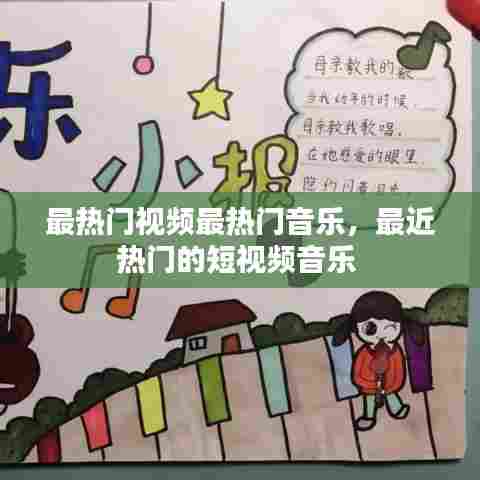 乐
小报
母亲教我的歌
当我幼年的时候,
母亲教我歌唱,
在她慈爱的眼里,
最热门视频最热门音乐，最近
热门的短视频音乐